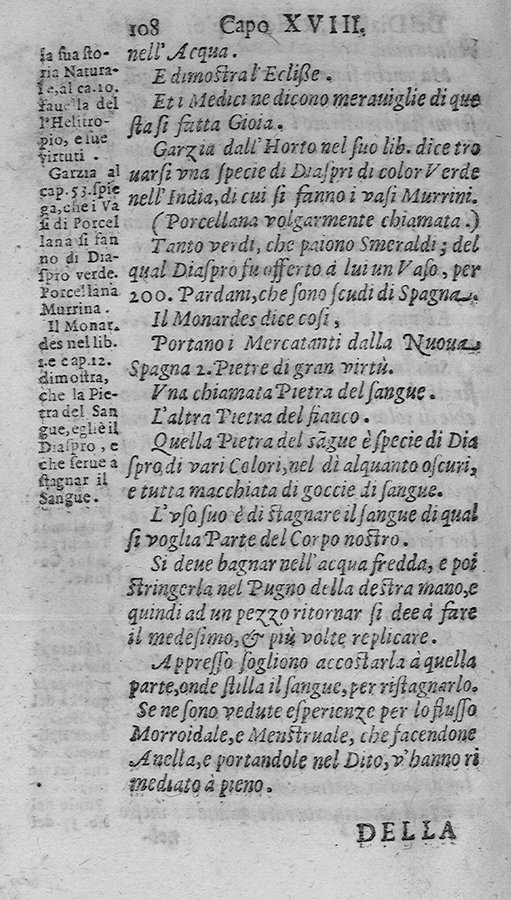 108 Capo XVIII.
ſa ſua ſto-
ria Natura-
le, al ca. 10.
fauella del
l'Helitro-
pio, e ſue
virtuti .
Garzia al
cap. 53. ſpie
ga, che i Va
ſi di Porcel
lana ſi fan
no di Dia-
ſpro verde.
Porcellana
Murrina .
Il Monar.
des nel lib.
1. e cap. 12.
dimoſtra,
che la Pie-
tra del San
gue, egli è il
Diaſpro , e
che ſerue a
ſtagnar il
Sangue .
nell'Acqua.
E dimoſtra l'Ecliße .
Et i Medici ne dicono merauiglie di que
ſta ſi fatta Gioia .
Garzia dall'Horto nel ſuo lib. dice tro
uarſi vna ſpecie di Diaſpri di color Verde
nell'India, di cui ſi fanno i vaſi Murrini.
(Porcellana volgarmente chiamata .)
Tanto verdi, che paiono Smeraldi ; del
qual Diaſpro fu offerto à lui un Vaſo , per
200. Pardani, che ſono ſcudi di Spagna.
Il Monardes dice coſi ,
Portano i Mercatanti dalla Nuoua
Spagna 2. Pietre di gran virtù.
Vna chiamata Pietra del ſangue .
L'altra Pietra del fianco .
Quella Pietra del sãgue è ſpecie di Dia
ſpro, di vari Colori, nel dì alquanto oſcuri,
e tutta macchiata di goccie di ſangue.
L'vſo ſuo è di ſtagnare il ſangue di qual
ſi voglia Parte del Corpo noſtro .
Si deue bagnar nell'acqua fredda, e poi
ſtringerla nel Pugno della deſtra mano, e
quindi ad un pezzo ritornar ſi dee à fare
il medeſimo, & più volte replicare .
Appreſſo ſogliono accoſtarla à quella
parte, onde ſtilla il ſangue, per riſtagnarlo.
Se ne ſono vedute eſperienze per lo fluſſo
Morroidale, e Menſtruale, che facendone
Anella, e portandole nel Dito, v'hanno ri
mediato à pieno .
DELLA